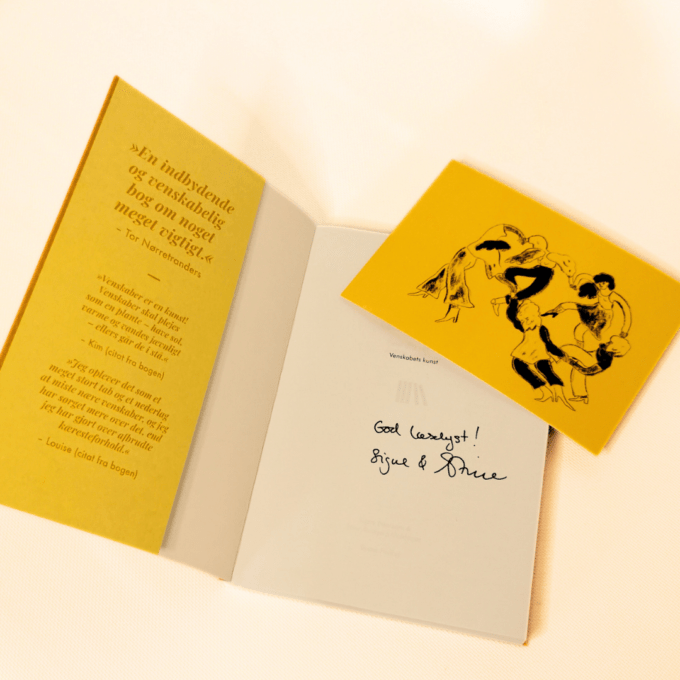 »En indbydende
og venskabelig
bog om noget
meget vigtigt.«
– Tor Nørretranders
»Venskaber er en kunst!
Venskaber skal plejes
som en plante – have sol,
varme og vandes jævnligt
– ellers går de i stå.«
– Kim (citat fra bogen)
»Jeg oplever det som et
meget stort tab og et nederlag
at miste nære venskaber, og jeg
har sørget mere over det, end
jeg har gjort over afbrudte
kæresteforhold.«
– Louise (citat fra bogen)
Venskabets kunst
God læselyst!
Signe & Stine